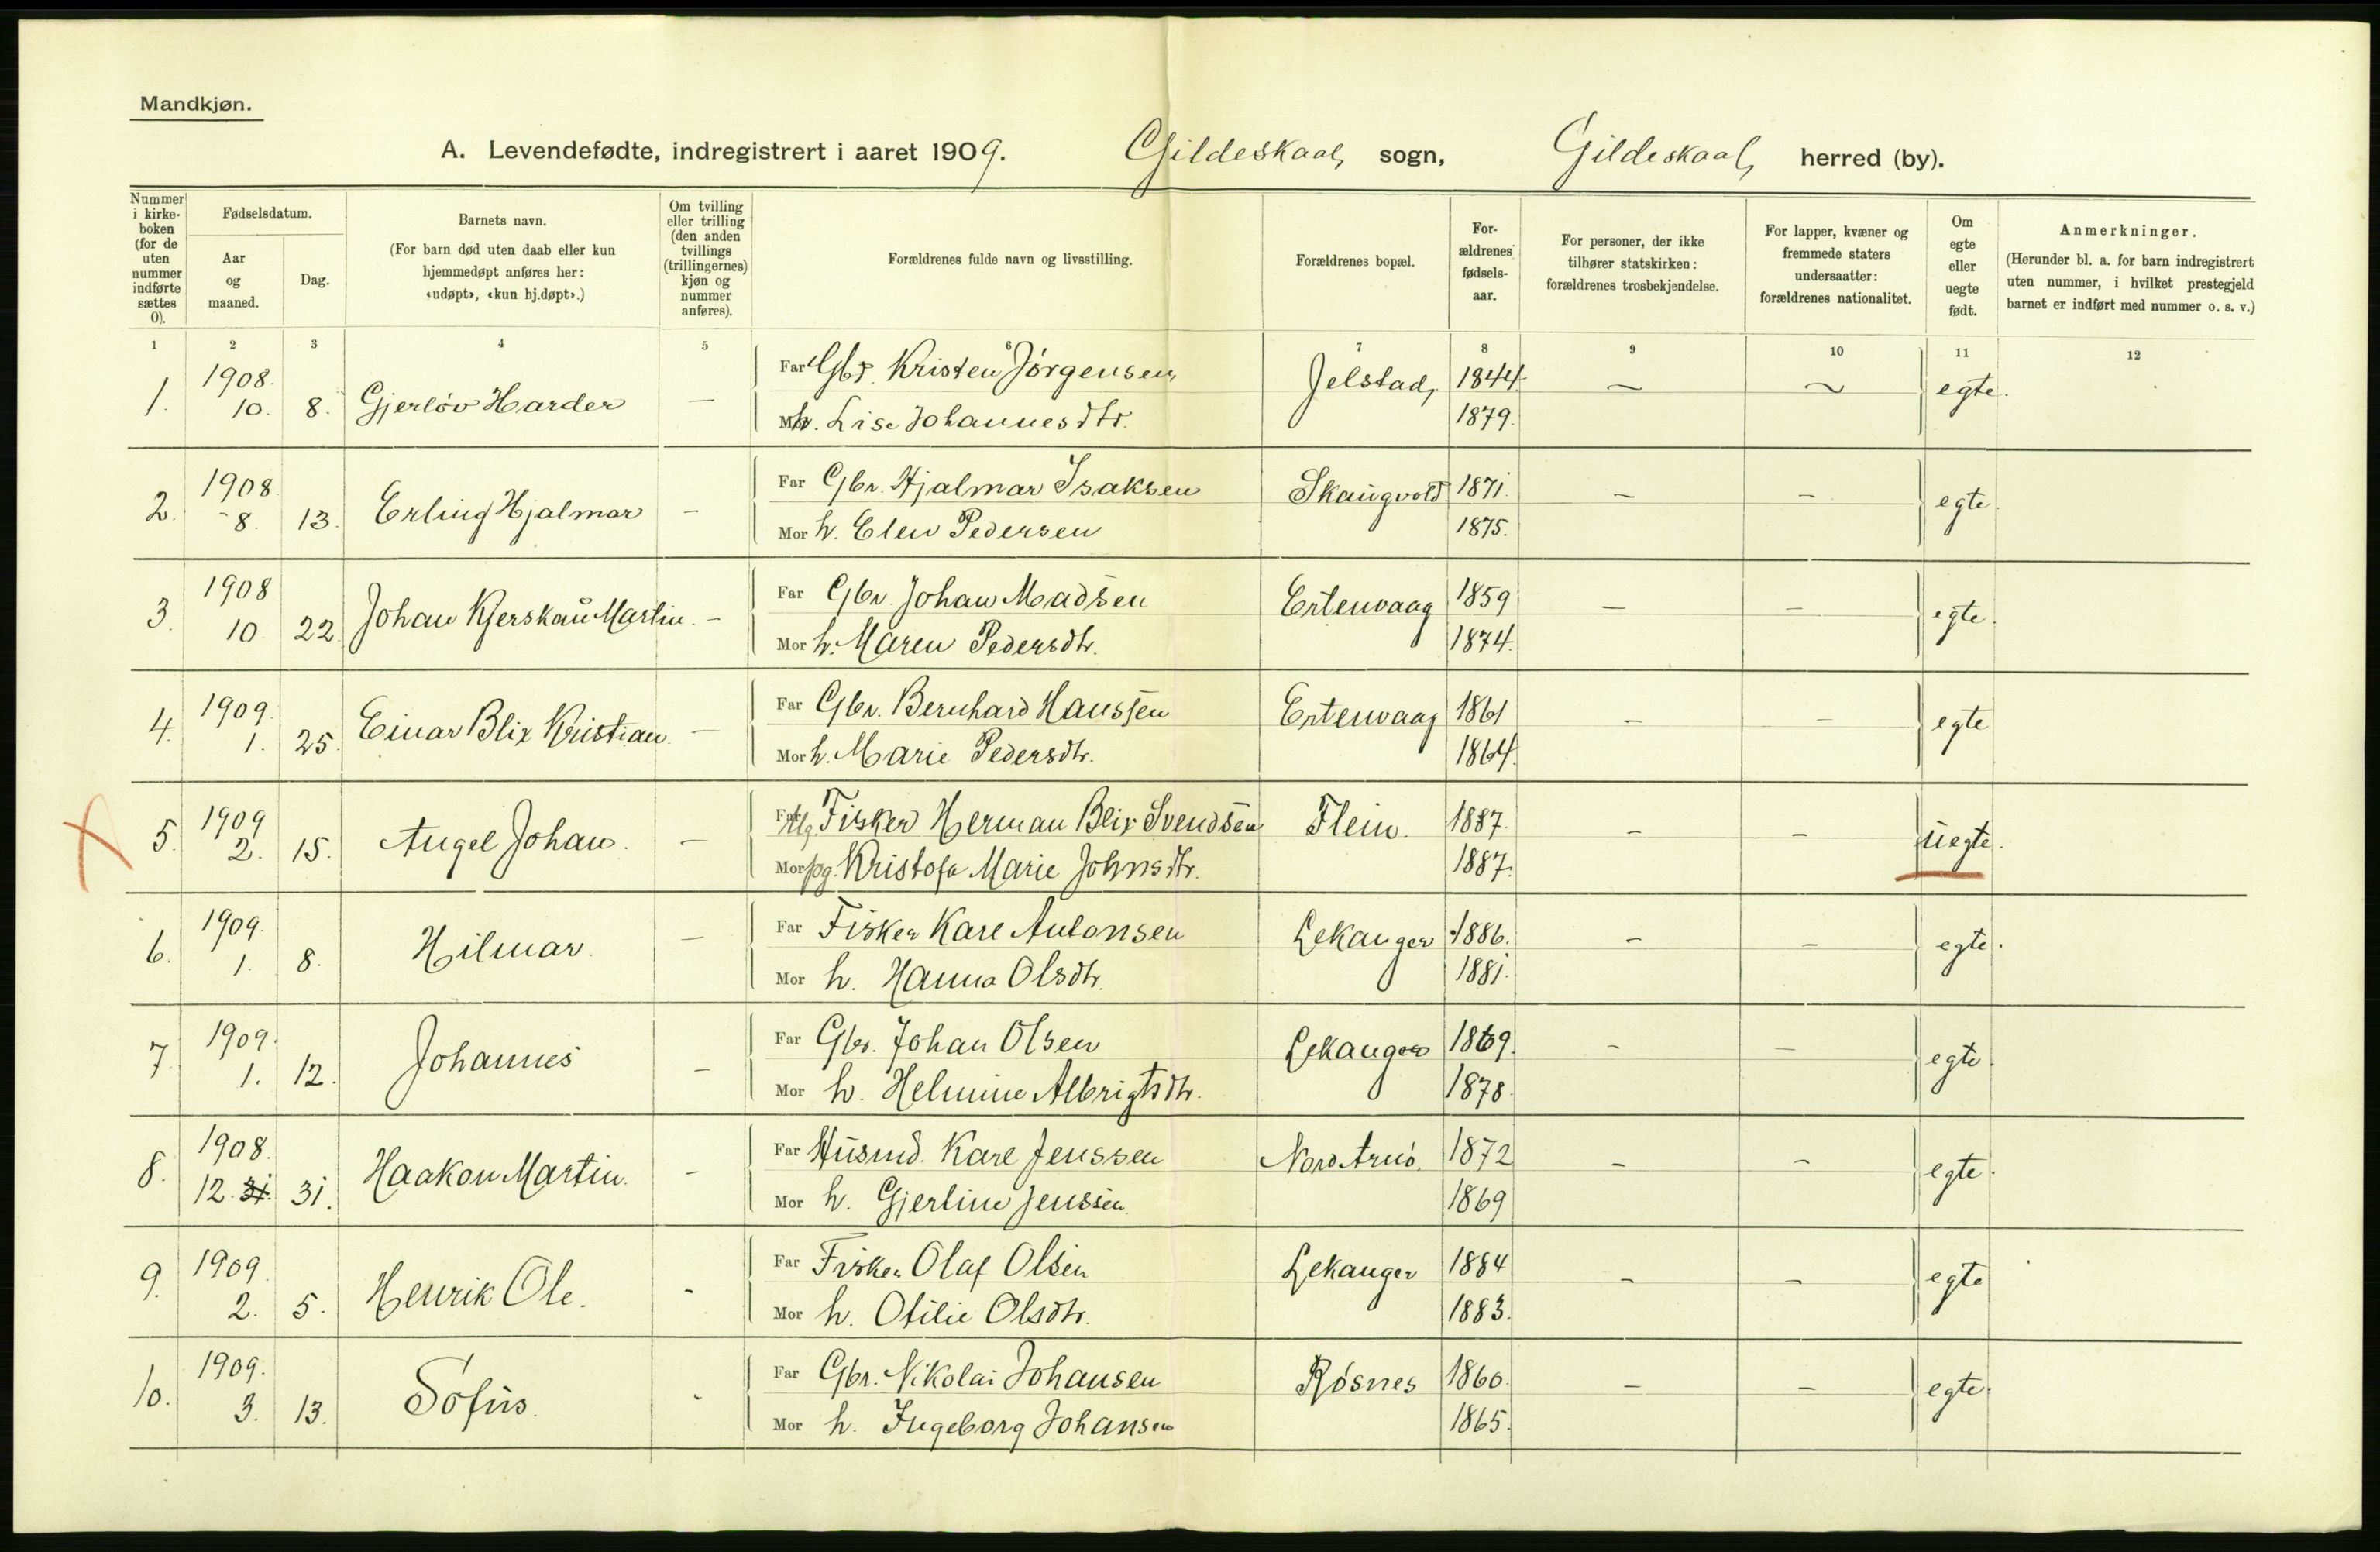 Mandkjøn.
A. Levendefødte, indregistrert i aaret 1909. Gildeskaal sogn, Gildeskaal herred (by).
Nummer i kirke-boken (for de uten nummer indførte sættes 0).
Fødselsdatum.
Aar og maaned.
Dag.
Barnets navn.
(For barn død uten daab eller kun hjemmedøpt anføres her: «udøpt», «kun hj.døpt».)
Om tvilling eller trilling (den anden tvillings (trillingernes) kjøn og nummer anføres).
Forældrenes fulde navn og livsstilling.
Forældrenes bopæl.
For-ældrenes fødsels-aar.
For personer, der ikke tilhører statskirken: forældrenes trosbekjendelse.
For lapper, kvæner og fremmede staters undersaatter: forældrenes nationalitet.
Om egte eller uegte født.
Anmerkninger.
(Herunder bl. a. for barn indregistrert uten nummer, i hvilket prestegjeld barnet er indført med nummer o. s. v.)
1 2 3 4 5 6 7 8 9 10 11 12
1. 1908. 10. 8. Gjerløv Harder — Far Gbr. Kristen Jørgensen Jelstad, 1844 — — egte.
Mor h. Lise Johannesdtr. 1879.
2. 1908 8. 13. Erling Hjalmar — Far Gbr. Hjalmar Isaksen Skaugvold 1871. — — egte.
Mor h. Elen Pedersen 1875.
3. 1908 10 22. Johan Kjerskau Martin. — Far Gbr. Johan Madsen Ertenvaag 1859 — — egte.
Mor h. Maren Pedersdtr. 1874.
4. 1909. 1. 25. Einar Blix Kristian. — Far Gbr. Bernhard Hanssen Ertenvaag 1861 — — egte
Mor h. Marie Pedersdtr. 1864.
5. 1909 2. 15. Angel Johan. — Far Ug. Fisker Herman Blix Svendsen Flein. 1887. — — uegte.
Mor pg. Kristofa Marie Johnsdtr. 1887.
6. 1909. 1. 8. Hilmar. — Far Fisker Karl Antonsen Lekanger 1886. — — egte.
Mor h. Hanna Olsdtr. 1881.
7 1909. 1. 12. Johannes — Far Gbr. Johan Olsen Lekanger 1869. — — egte.
Mor h. Helmine Albrigtsdtr. 1878.
8. 1908. 12. 31. 31. Haakon Martin. — Far Husmd. Karl Jenssen Nord Arnö. 1872 — — egte.
Mor h. Gjerline Jenssen. 1869
9. 1909. 2. 5. Henrik Ole. - Far Fisker Olaf Olsen Lekanger 1884 — — egte
Mor h. Otilie Olsdtr. 1883.
10. 1909. 3. 13. Sofus. - Far Gbr. Nikolai Johansen Røsnes 1860. — — egte.
Mor h. Ingeborg Johansen 1865.